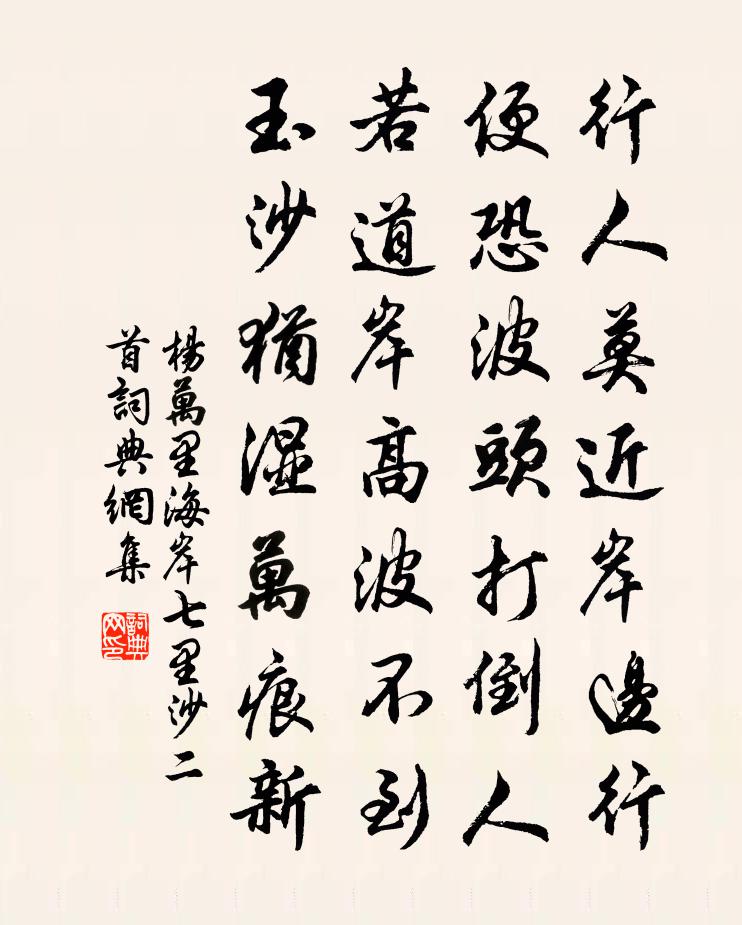 行人莫近岸邊行
便恐波頭打倒人
若道岸高波不到
玉沙猶濕萬痕新
楊萬里海岸七里沙二
首詞典網集
詞典
网印